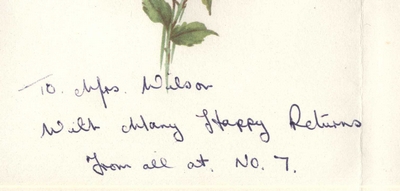 To. Mrs. Wilson
With Many Happy Returns
From all at. No. 7.